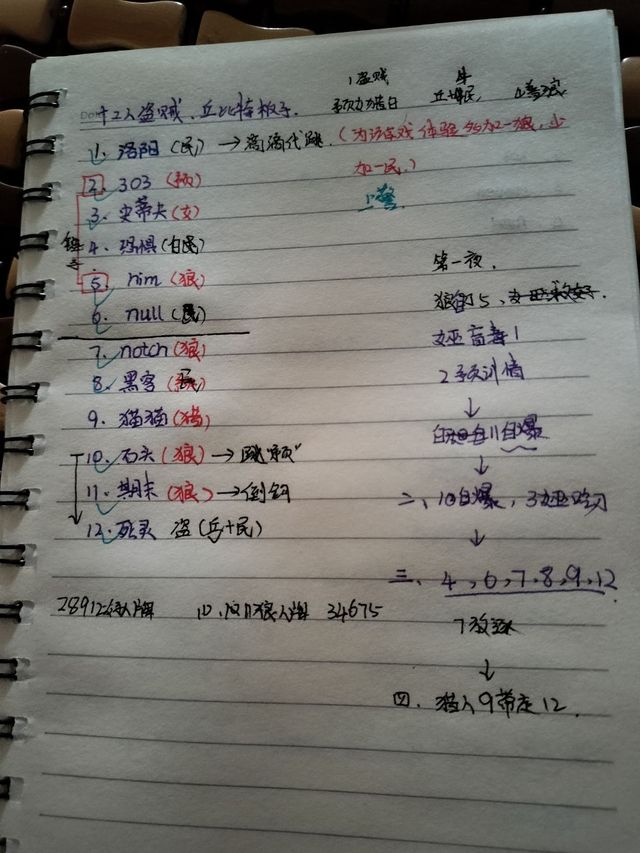 十二人盗贼、丘比特板子.
1盗贼
预女猎白 丘+民, 4普狼
1. 洛阳 (民) → 代跳. (为游戏体验多加一狼, 少
加一民.)
2. 303 (预)
上警
3. 史蒂夫 (女)
链子
4. 恐惧 (白民)
5. nim (狼)
6. null (民)
7. notch (狼)
8. 黑客
9. 猫猫 (猎)
10. 石头 (狼) → 跳预
11. 期末 (狼) → 倒钩
12. 死灵 盗 (丘+民)
28912好人牌 10、11狼人牌 34675
第一夜.
狼刀5、
女巫盲毒1
2预
↓
自爆
↓
二、10自爆, 3女巫吃刀
↓
三、4,6,7,8,9,12
7放逐
↓
四、猎人9带走12.